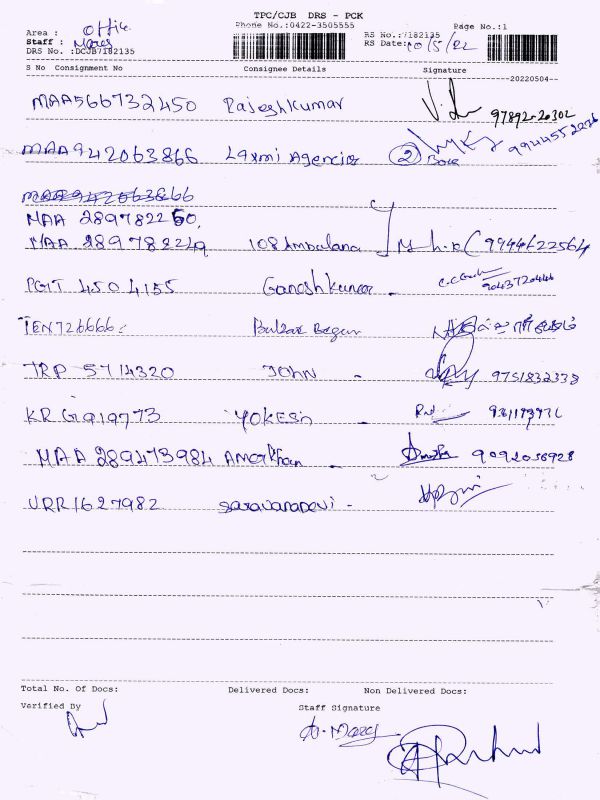 TPC/CJB DRS - PCK
Phone No.:0422-3505555
Area : Office
Staff : Mary
DRS No. :DCJB7182135
RS No.:7182135
RS Date: 10/5/22
Page No.:1
S No Consignment No Consignee Details Signature
20220504
MAA566732450 Rajeshkumar 97892-20302
MAA942063866 Laxmi Agencies 2 Box 9944552226
MAA942063866
MAA 289782250
MAA 289782249 108 Ambulana 9944622564
PGT 4504155 Ganeshkumar - 9043720446
TEN726666
TRP 5714320 JOHN - 9751832338
KRG919773 YOKESH
MAA 289473984 - 9092056928
URR1627982 Saravanadevi -
Total No. Of Docs: Delivered Docs: Non Delivered Docs:
Verified By Staff Signature